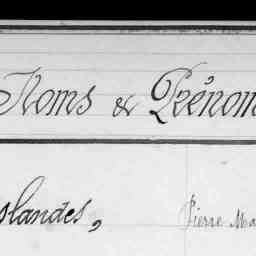 Noms & Prénom
slandes, Pierre Ma